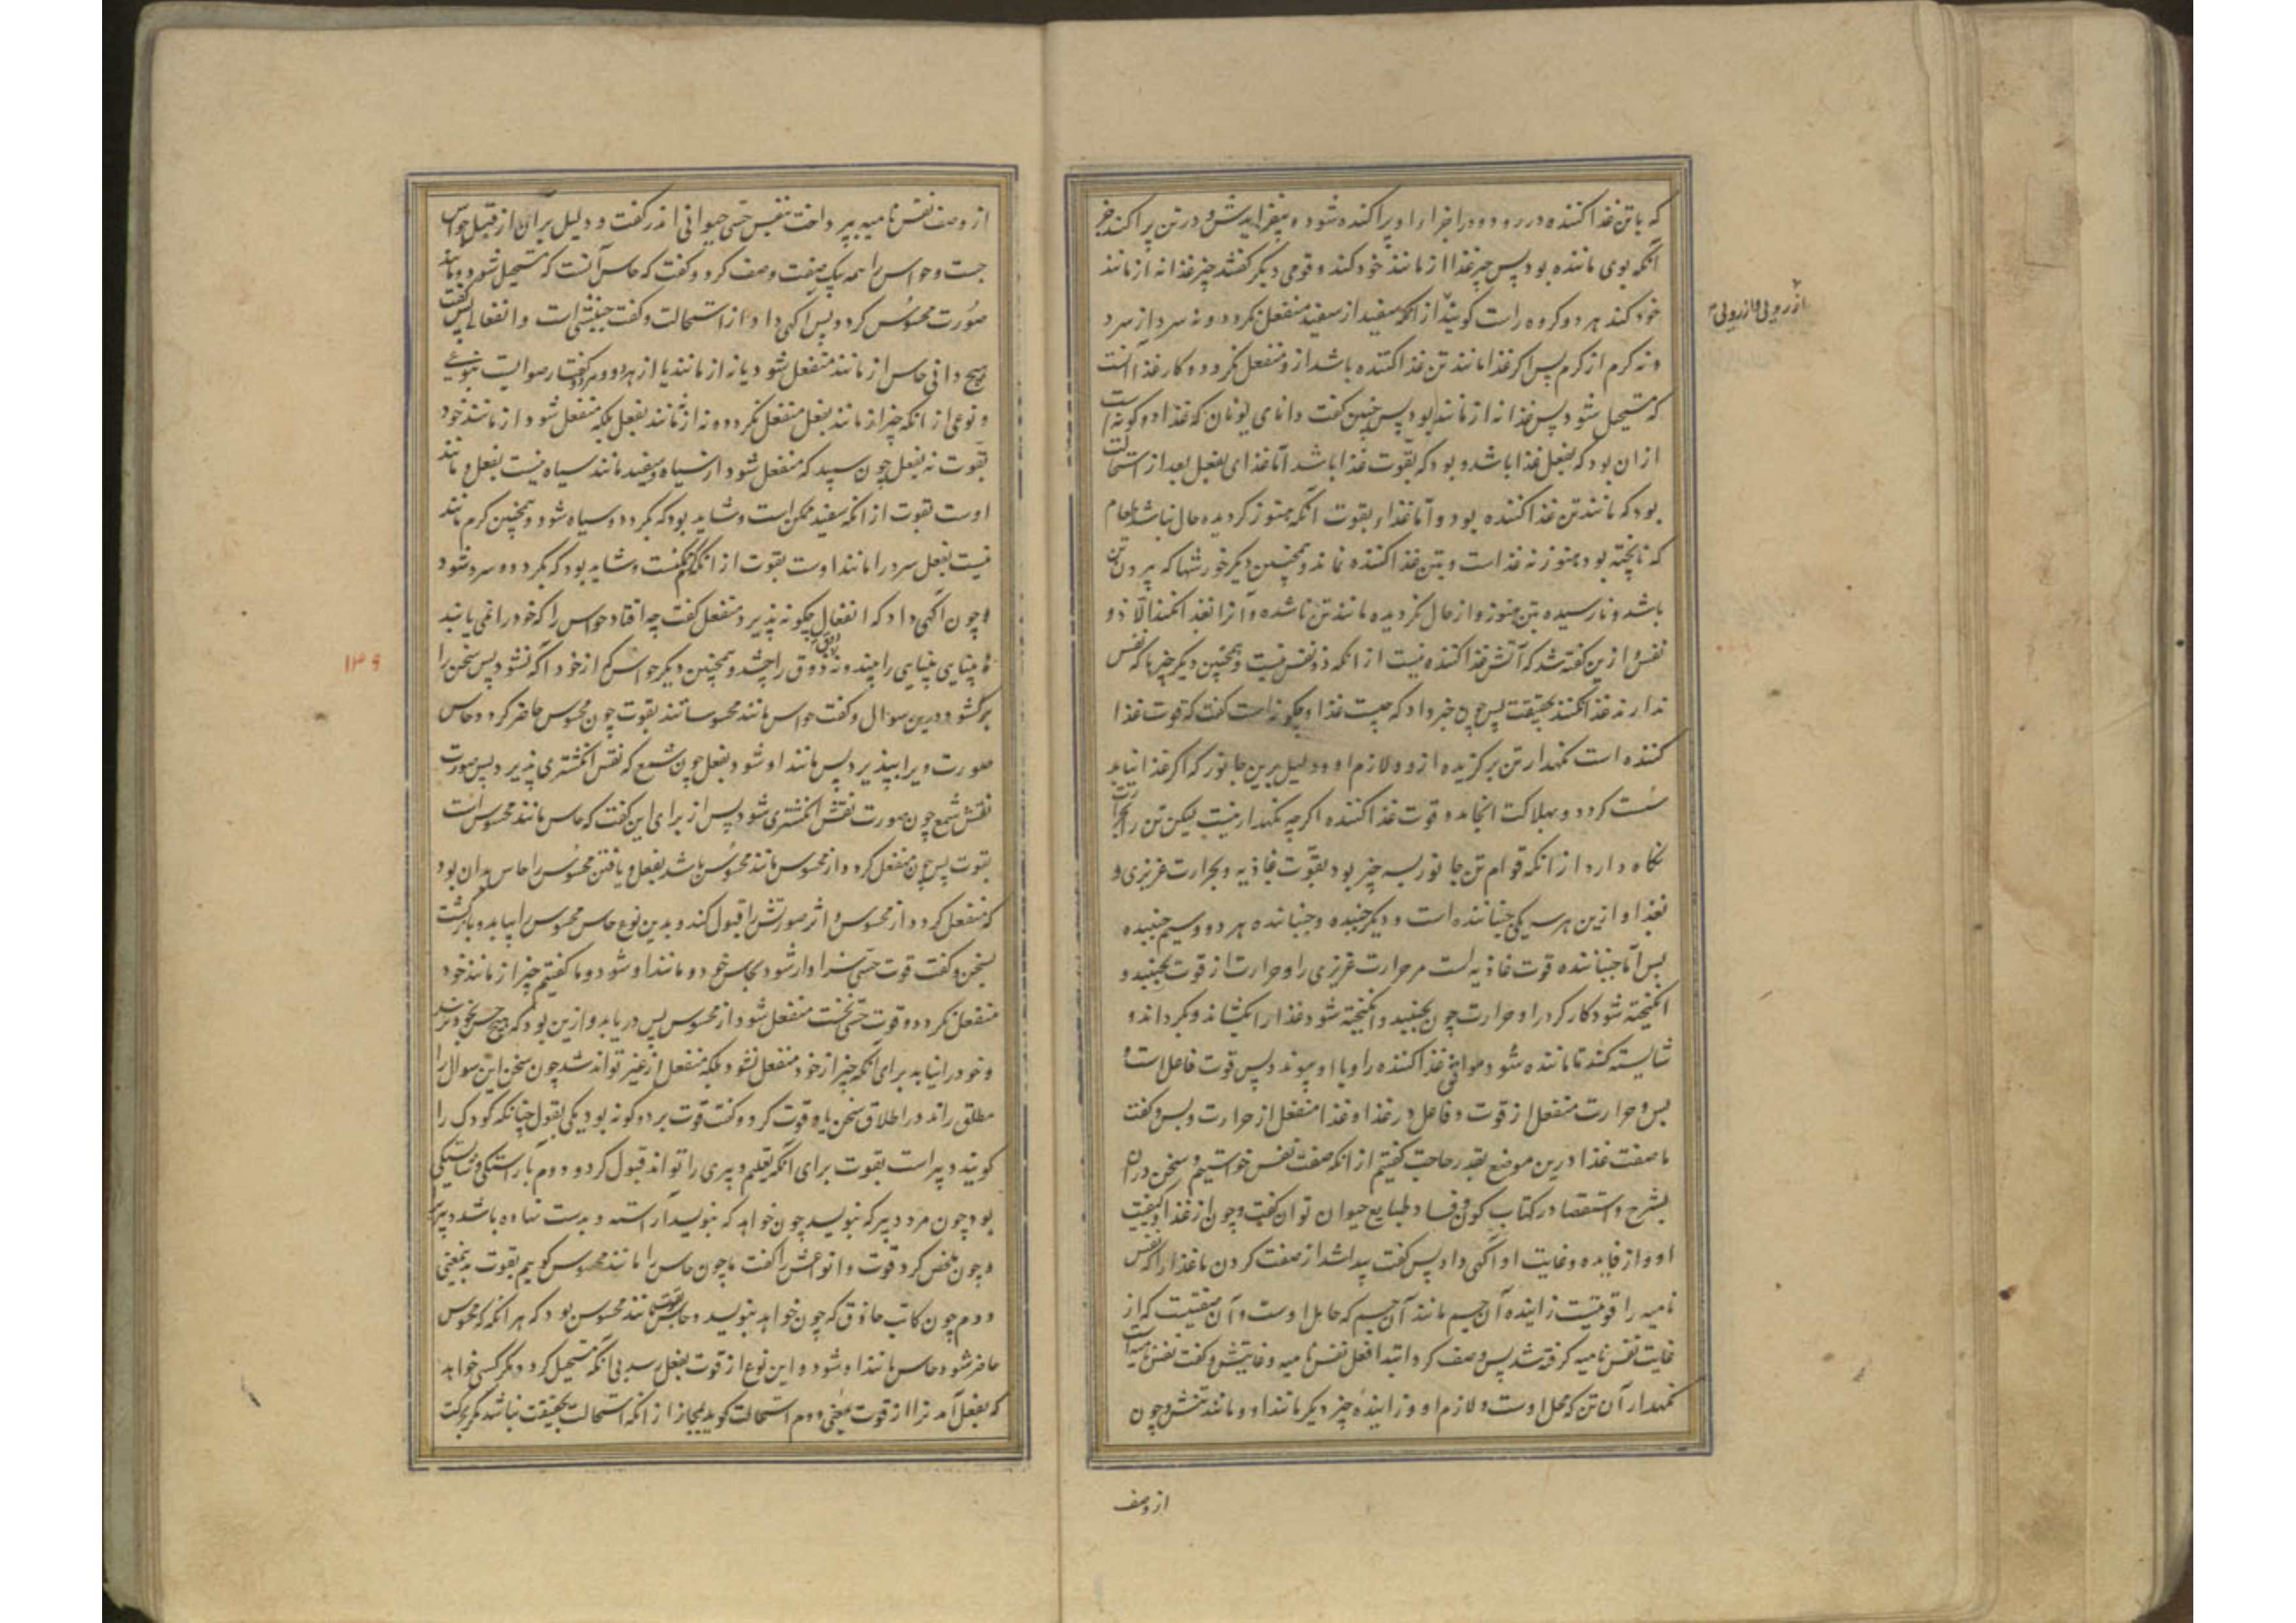 که باتن غذا کننده در رود و در اجزاء او پراکنده شود و بیفزایدش و در تن پراکند جز
آنکه بوی ماننده بود پس چیز غذا از مانند خود کند و قومی دیگر گفتند چیز غذا نه از مانند
خود کند هر دو گروه راست گویند از آنکه سفید از سفید منفعل نگردد و نه سرد از سرد
از رویی و از رویی نه
و نه گرم از گرم پس اگر غذا مانند تن غذا کننده باشد ازو منفعل نگردد و کار غذا آنست
که مستحیل شود پس غذا نه از مانند بود پس چنین گفت دانای یونان که غذا دو گونه است
ازان بود که بفعل غذا باشد و بود که بقوت غذا باشد اما غذای بفعل بعد از استحالت
بود که مانند تن غذا کننده بود و اما غذاء بقوت آنکه هنوز گردیده حال نباشد طعام
که ناپخته بود هنوز نه غذاست و بتن غذا کننده نماند و همچنین دیگر خورشها که بیرون تن
باشد و نارسیده بتن هنوز و از حال نگردیده مانند تن ناشده و آنرا بغذا نکند الا ذو
نفس و ازین گفته شد که آتش غذا کننده نیست از آنکه ذو نفس نیست و همچنین دیگر چیزها که نفس
ندارند غذا نکنند بحقیقت پس چون خبر داد که چیست غذا و چگونه است گفت که قوت غذا
کننده است نگهدار تن برگزیده ازو و لازم او و دلیل برین جانور که اگر غذا نیابد
سست گردد و بهلاکت انجامد و قوت غذا کننده اگرچه نگهدار نیست لیکن تن را بحرارت
نگاه دارد از آنکه قوام تن جانور بسه چیز بود بقوت غاذیه و بحرارت غریزی و
بغذا و ازین هر سه یکی جنباننده است و دیگر جنبیده و جنباننده هر دو و سیم جنبیده
پس اما جنباننده قوت غاذیه است مر حرارت غریزی را و حرارت از قوت بجنبد و
انگیخته شود کار کرد را و حرارت چون بجنبید و انگیخته شود غذا را بکشاند و بگرداند و
شایسته کند تا ماننده شود و موافق غذا کننده را و با او پیوندد پس قوت فاعل است و
بس و حرارت منفعل از قوت و فاعل در غذا و غذا منفعل از حرارت و بس و گفت
ما صفت غذا درین موضع بقدر حاجت گفتیم از آنکه صفت نفس خواستیم و سخن در آن
بشرح و استقصا در کتاب کون و فساد و طبایع حیوان توان گفت و چون از غذا و کیفیت
او و از فایده و غایت او آگهی داد پس گفت پیدا شد از صفت کردن ما غذا را که نفس
نامیه را قوتیست زاینده آن جسم مانند آن جسم که حامل اوست و آن صفتیست که از
غایت نفس نامیه گرفته شد پس وصف کرد ابتدا فعل نفس نامیه و غایتش و گفت نفس نامیه
نگهدار آن تن که محل اوست و لازم او و زاینده چیز دیگر مانند او و مانند تنش و چون
از وصف
از وصف نفس نامیه بپرداخت بنفس حسی حیوانی اندر گفت و دلیل بر آن از قبل حواس
جست و حواس را همه بیک صفت وصف کرد و گفت که حاس آنست که مستحیل شود و مانند
صورت محسوس گردد پس آگهی داد از استحالت و گفت جنبشی است و انفعالی پس گفت
هیچ دانی حاس از مانند منفعل شود یا نه از مانند یا از هر دو و هر دو گفتار صوابست بنوعی
و نوعی از آنکه چیز از مانند بفعل منفعل نگردد و نه از نامانند بفعل بلکه منفعل شود از مانند خود
بقوت نه بفعل چون سپید که منفعل شود از سیاه و سفید مانند سیاه نیست بفعل و مانند
اوست بقوت از آنکه سفید ممکن است و شاید بود که بگردد و سیاه شود و همچنین گرم مانند
نیست بفعل سرد را مانند اوست بقوت از آنکه گرم ممکنست و شاید بود که بگردد و سرد شود
و چون آگهی داد که انفعال چگونه پذیرد منفعل گفت چه افتاد حواس را که خود را نمی یابند
نه بینایی بینایی را بیند و نه ذوق را چشد و همچنین دیگر حواس که از خود آگه نشود پس سخن را
برگشود درین سوال و گفت حواس مانند محسوساتند بقوت چون محسوس حاضر گردد حاس
صورت ویرا بپذیرد پس مانند او شود بفعل چون شمع که نقش انگشتری پذیرد پس صورت
نقش شمع چون صورت نقش انگشتری شود پس از برای این گفت که حاس مانند محسوس است
بقوت پس چون منفعل گردد از محسوس مانند محسوس باشد بفعل و یافتن محسوس را حاس بدان بود
که منفعل گردد از محسوس و اثر صورتش را قبول کند و بدین نوع حاس محسوس را بیابد و بازگشت
بسخن و گفت قوت حسی سزاوار شود بمحاس خود و مانند او شود و ما گفتیم چیز از مانند خود
منفعل نگردد و قوت حسی نخست منفعل شود از محسوس پس دریابد و ازین بود که هیچ حس بخود نرسد
و خود را نیابد برای آنکه چیز از خود منفعل نشود بلکه منفعل از غیر تواند شد چون سخن این سوال را
مطلق راند در اطلاق سخن یاد قوت کرد و گفت قوت بر دو گونه بود یکی بقول چنانکه کودک را
گویند دبیر است بقوت برای آنکه بتعلم دبیری را تواند قبول کرد و دوم بآراستگی و شایستگی
بود چون مرد دبیر که بنویسد چون خواهد که بنویسد آراسته و بدست نهاده باشد دبیری را
و چون ملخص کرد قوت و انواعش را گفت ما چون حاس را مانند محسوس گوییم بقوت بمعنی
دوم چون کاتب حاذق که چون خواهد بنویسد و حاس بقوت مانند محسوس بود که هر آنگه که محسوس
حاضر شود حاس مانند او شود و این نوع از قوت بفعل رسد بی آنکه مستحیل گردد مگر کسی خواهد
که بفعل آمدنرا از قوت بمعنی دوم استحالت گوید بمجاز از آنکه استحالت بحقیقت نباشد مگر بحرکت
۱۳۶